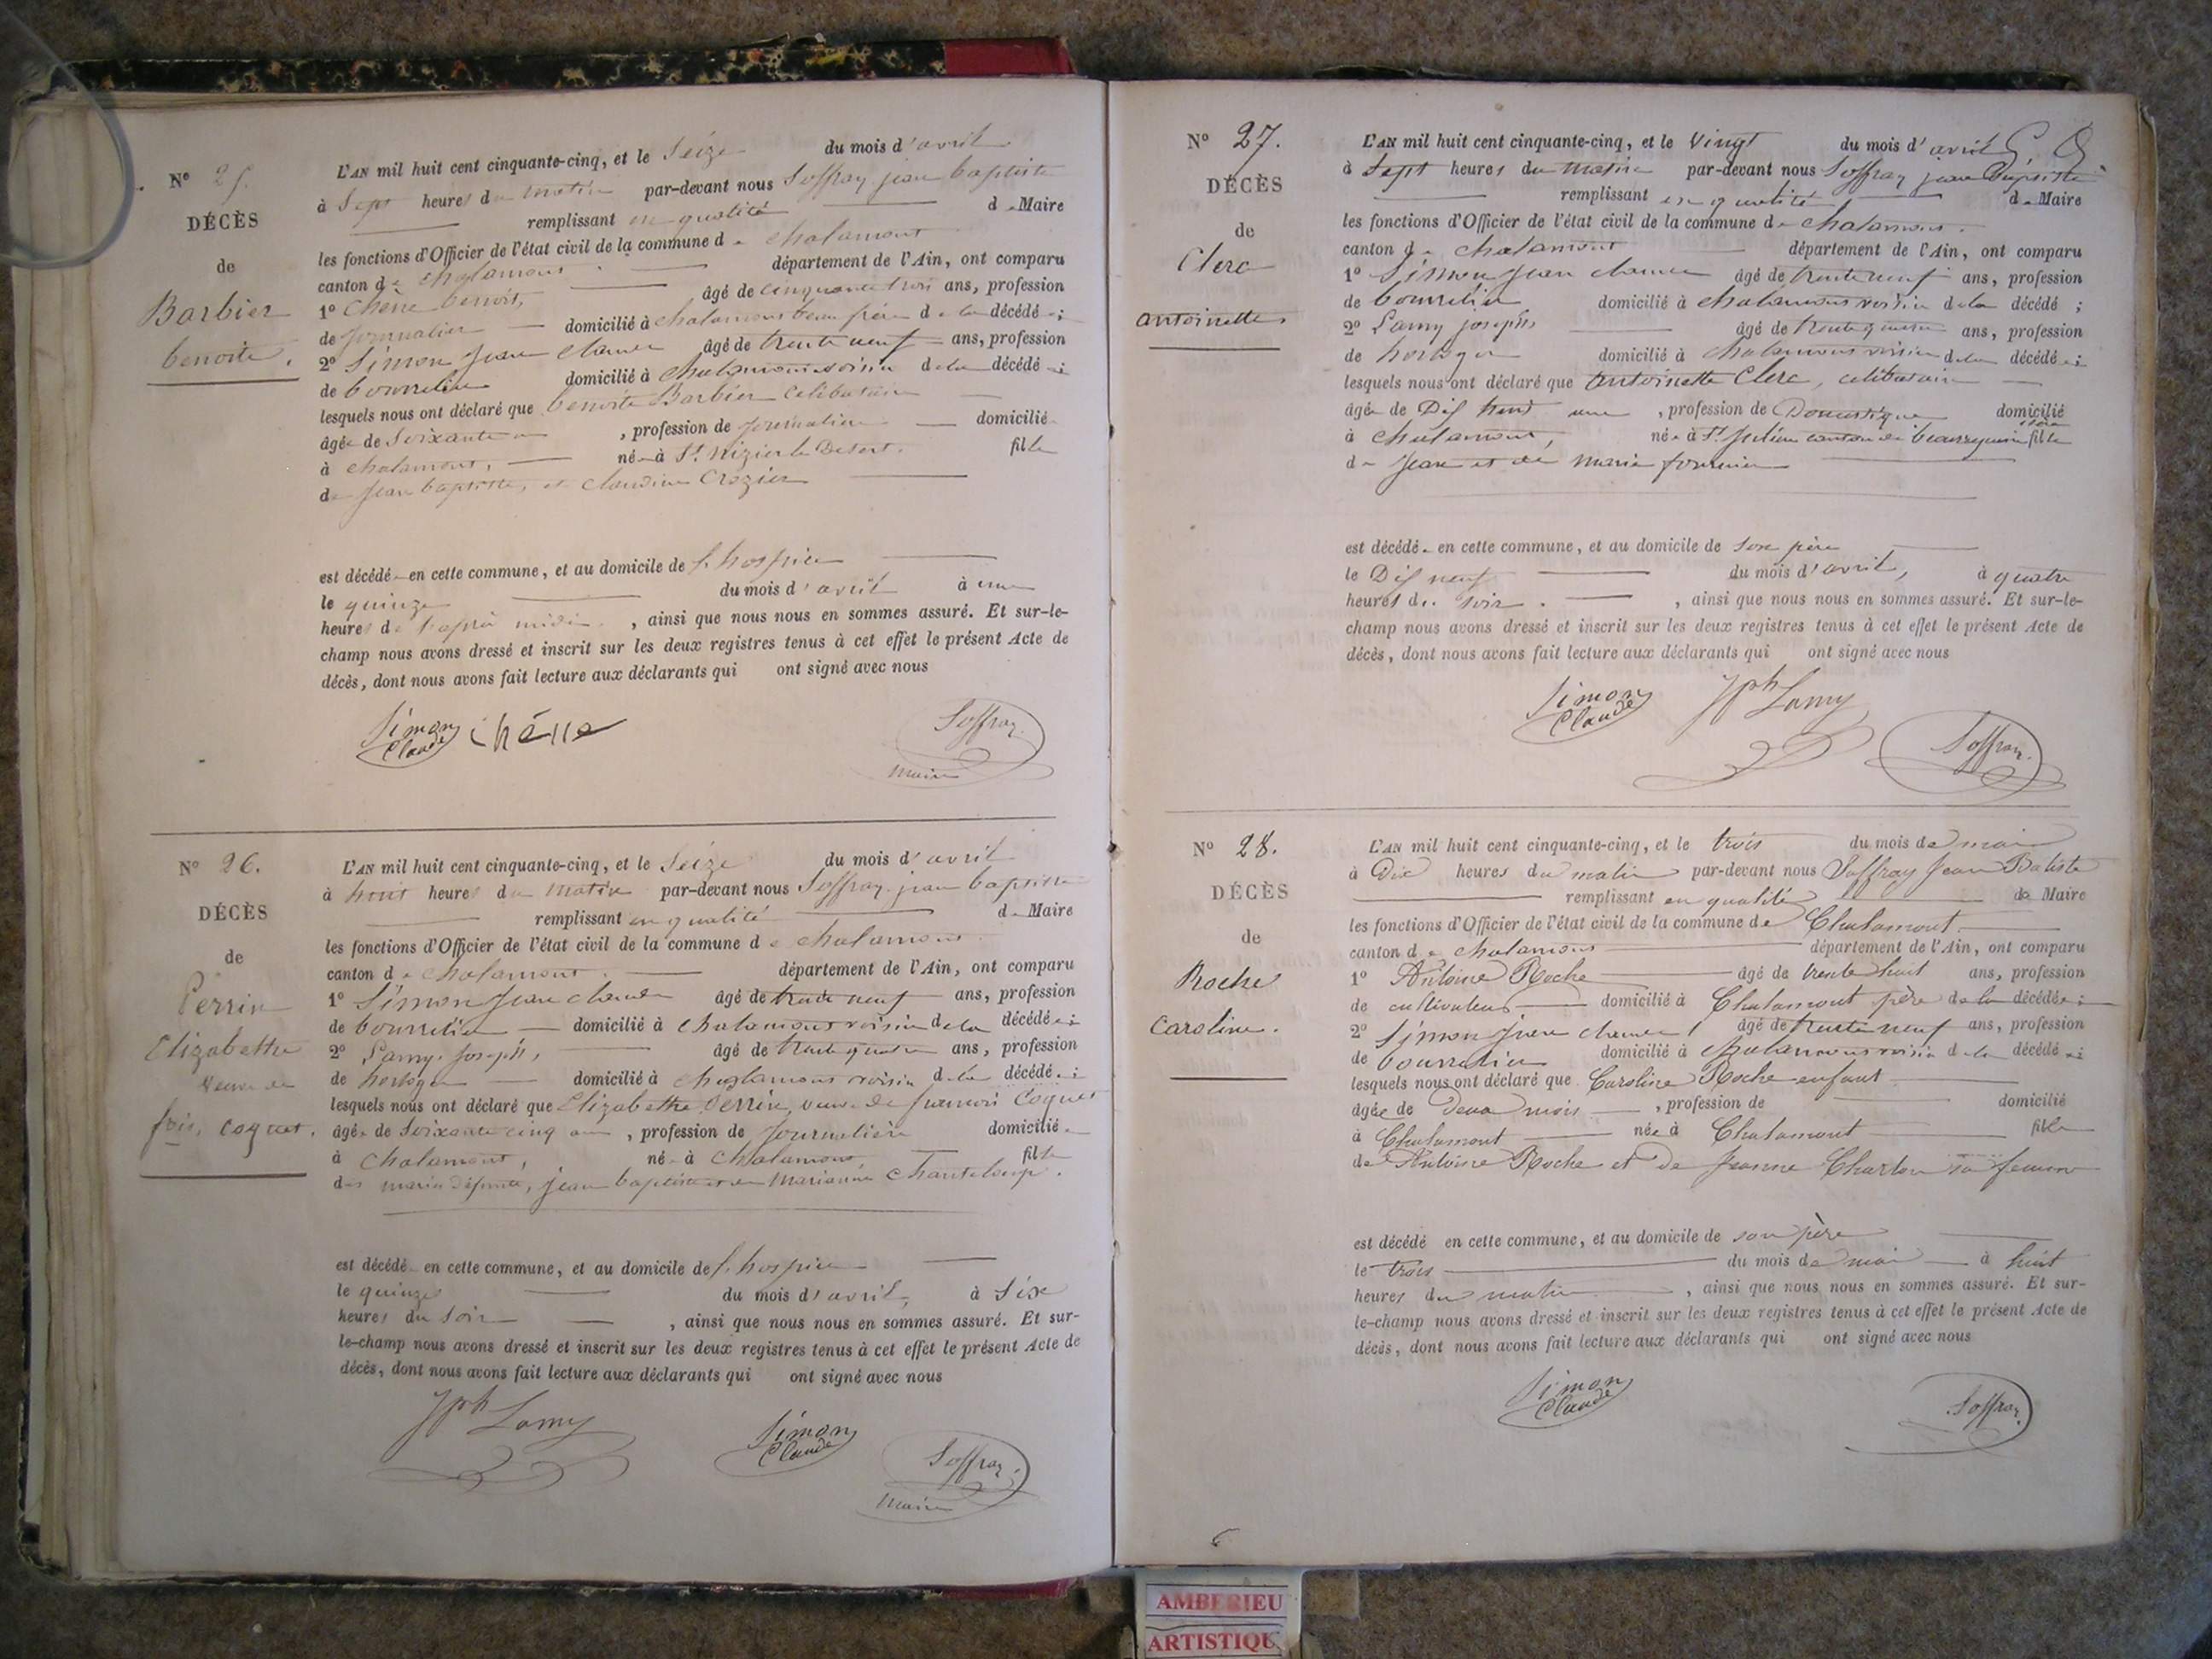 N° 25.
DÉCÈS
de
Barbier
benoite.
L'AN mil huit cent cinquante-cinq, et le Seize du mois d'avril
à Sept heures du matin par-devant nous Soffray jean baptiste
remplissant en qualité de Maire
les fonctions d'Officier de l'état civil de la commune de chalamont
canton de chalamont département de l'Ain, ont comparu
1° Chêne benoit, âgé de cinquante trois ans, profession
de journalier domicilié à chalamont beau frère de la décédée ;
2° Simon Jean Claude âgé de trente neuf ans, profession
de bourrelier domicilié à chalamont voisin de la décédée ;
lesquels nous ont déclaré que benoite Barbier Célibataire
âgée de Soixante , profession de journalière domiciliée
à chalamont, née à St Nizier le Desert. fille
de Jean baptiste, et Claudine Crozier
est décédée en cette commune, et au domicile de l'hospice
le quinze du mois d'avril à une
heures de l'après midi , ainsi que nous nous en sommes assuré. Et sur-le-
champ nous avons dressé et inscrit sur les deux registres tenus à cet effet le présent Acte de
décès, dont nous avons fait lecture aux déclarants qui ont signé avec nous
Simon Claude
Soffray
maire
N° 26.
DÉCÈS
de
Perrin
Elizabethe
Veuve de
fois. Coquet.
L'AN mil huit cent cinquante-cinq, et le Seize du mois d'avril
à huit heures du matin par-devant nous Soffray jean baptiste
remplissant en qualité de Maire
les fonctions d'Officier de l'état civil de la commune de chalamont
canton de chalamont. département de l'Ain, ont comparu
1° Simon Jean claude âgé de trente neuf ans, profession
de bourrelier domicilié à chalamont voisin de la décédée ;
2° Lamy Joseph, âgé de trente quatre ans, profession
de horloger domicilié à chalamont voisin de la décédée ;
lesquels nous ont déclaré que Elizabethe Perrin, veuve de francois Coquet
âgée de Soixante cinq ans , profession de journalière domiciliée
à Chalamont, née à Chalamont, fille
des mariés défunts, jean baptiste et de Marianne Chanteloup.
est décédée en cette commune, et au domicile de l'hospice
le quinze du mois d'avril, à Six
heures du Soir , ainsi que nous nous en sommes assuré. Et sur-
le-champ nous avons dressé et inscrit sur les deux registres tenus à cet effet le présent Acte de
décès, dont nous avons fait lecture aux déclarants qui ont signé avec nous
Jph Lamy
Simon Claude
Soffray
Maire
N° 27.
DÉCÈS
de
Clerc
antoinette.
L'AN mil huit cent cinquante-cinq, et le Vingt du mois d'avril
à Sept heures du matin par-devant nous Soffray jean Baptiste
remplissant en qualité de Maire
les fonctions d'Officier de l'état civil de la commune de chalamont.
canton de chalamont département de l'Ain, ont comparu
1° Simon Jean claude âgé de trente neuf ans, profession
de bourrelier domicilié à chalamont voisin de la décédée ;
2° Lamy joseph âgé de trente quatre ans, profession
de horloger domicilié à chalamont voisin de la décédée ;
lesquels nous ont déclaré que antoinette Clerc, célibataire
âgée de Dix huit ans , profession de Domestique domicilié
à chalamont, née à St Julien canton de fille
de Jean et de marie fournier
est décédée en cette commune, et au domicile de son père
le Dix neuf du mois d'avril, à quatre
heures du soir. , ainsi que nous nous en sommes assuré. Et sur-le-
champ nous avons dressé et inscrit sur les deux registres tenus à cet effet le présent Acte de
décès, dont nous avons fait lecture aux déclarants qui ont signé avec nous
Simon Claude
Jph Lamy
Soffray
N° 28.
DÉCÈS
de
Roche
Caroline.
L'AN mil huit cent cinquante-cinq, et le trois du mois de mai
à Dix heures du matin par-devant nous Soffray Jean Batiste
remplissant en qualité de Maire
les fonctions d'Officier de l'état civil de la commune de Chalamont
canton de chalamont département de l'Ain, ont comparu
1° Antoine Roche âgé de trente huit ans, profession
de cultivateur domicilié à Chalamont père de la décédée ;
2° Simon Jean claude âgé de trente neuf ans, profession
de bourrelier domicilié à chalamont voisin de la décédée ;
lesquels nous ont déclaré que Caroline Roche enfant
âgée de Deux mois , profession de domicilié
à Chalamont née à Chalamont fille
de Antoine Roche et de Jeanne Charton sa femme
est décédé en cette commune, et au domicile de son père
le trois du mois de mai à huit
heures du matin , ainsi que nous nous en sommes assuré. Et sur-
le-champ nous avons dressé et inscrit sur les deux registres tenus à cet effet le présent Acte de
décès, dont nous avons fait lecture aux déclarants qui ont signé avec nous
Simon Claude
Soffray
AMBERIEU
ARTISTIQUE